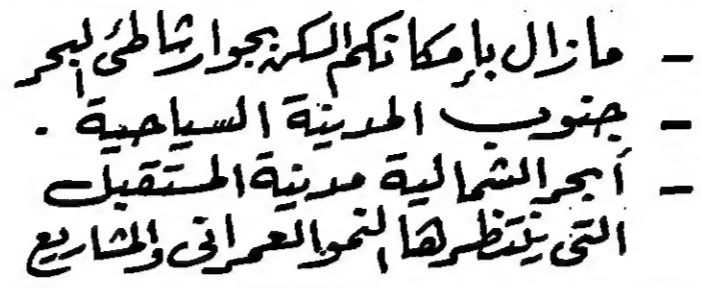 - مازال بإمكانكم السكن بجوار شاطئ البحر
- جنوب المدينة السياحية .
- أبحر الشمالية مدينة المستقبل
التي ينتظرها النمو العمراني والمشاريع